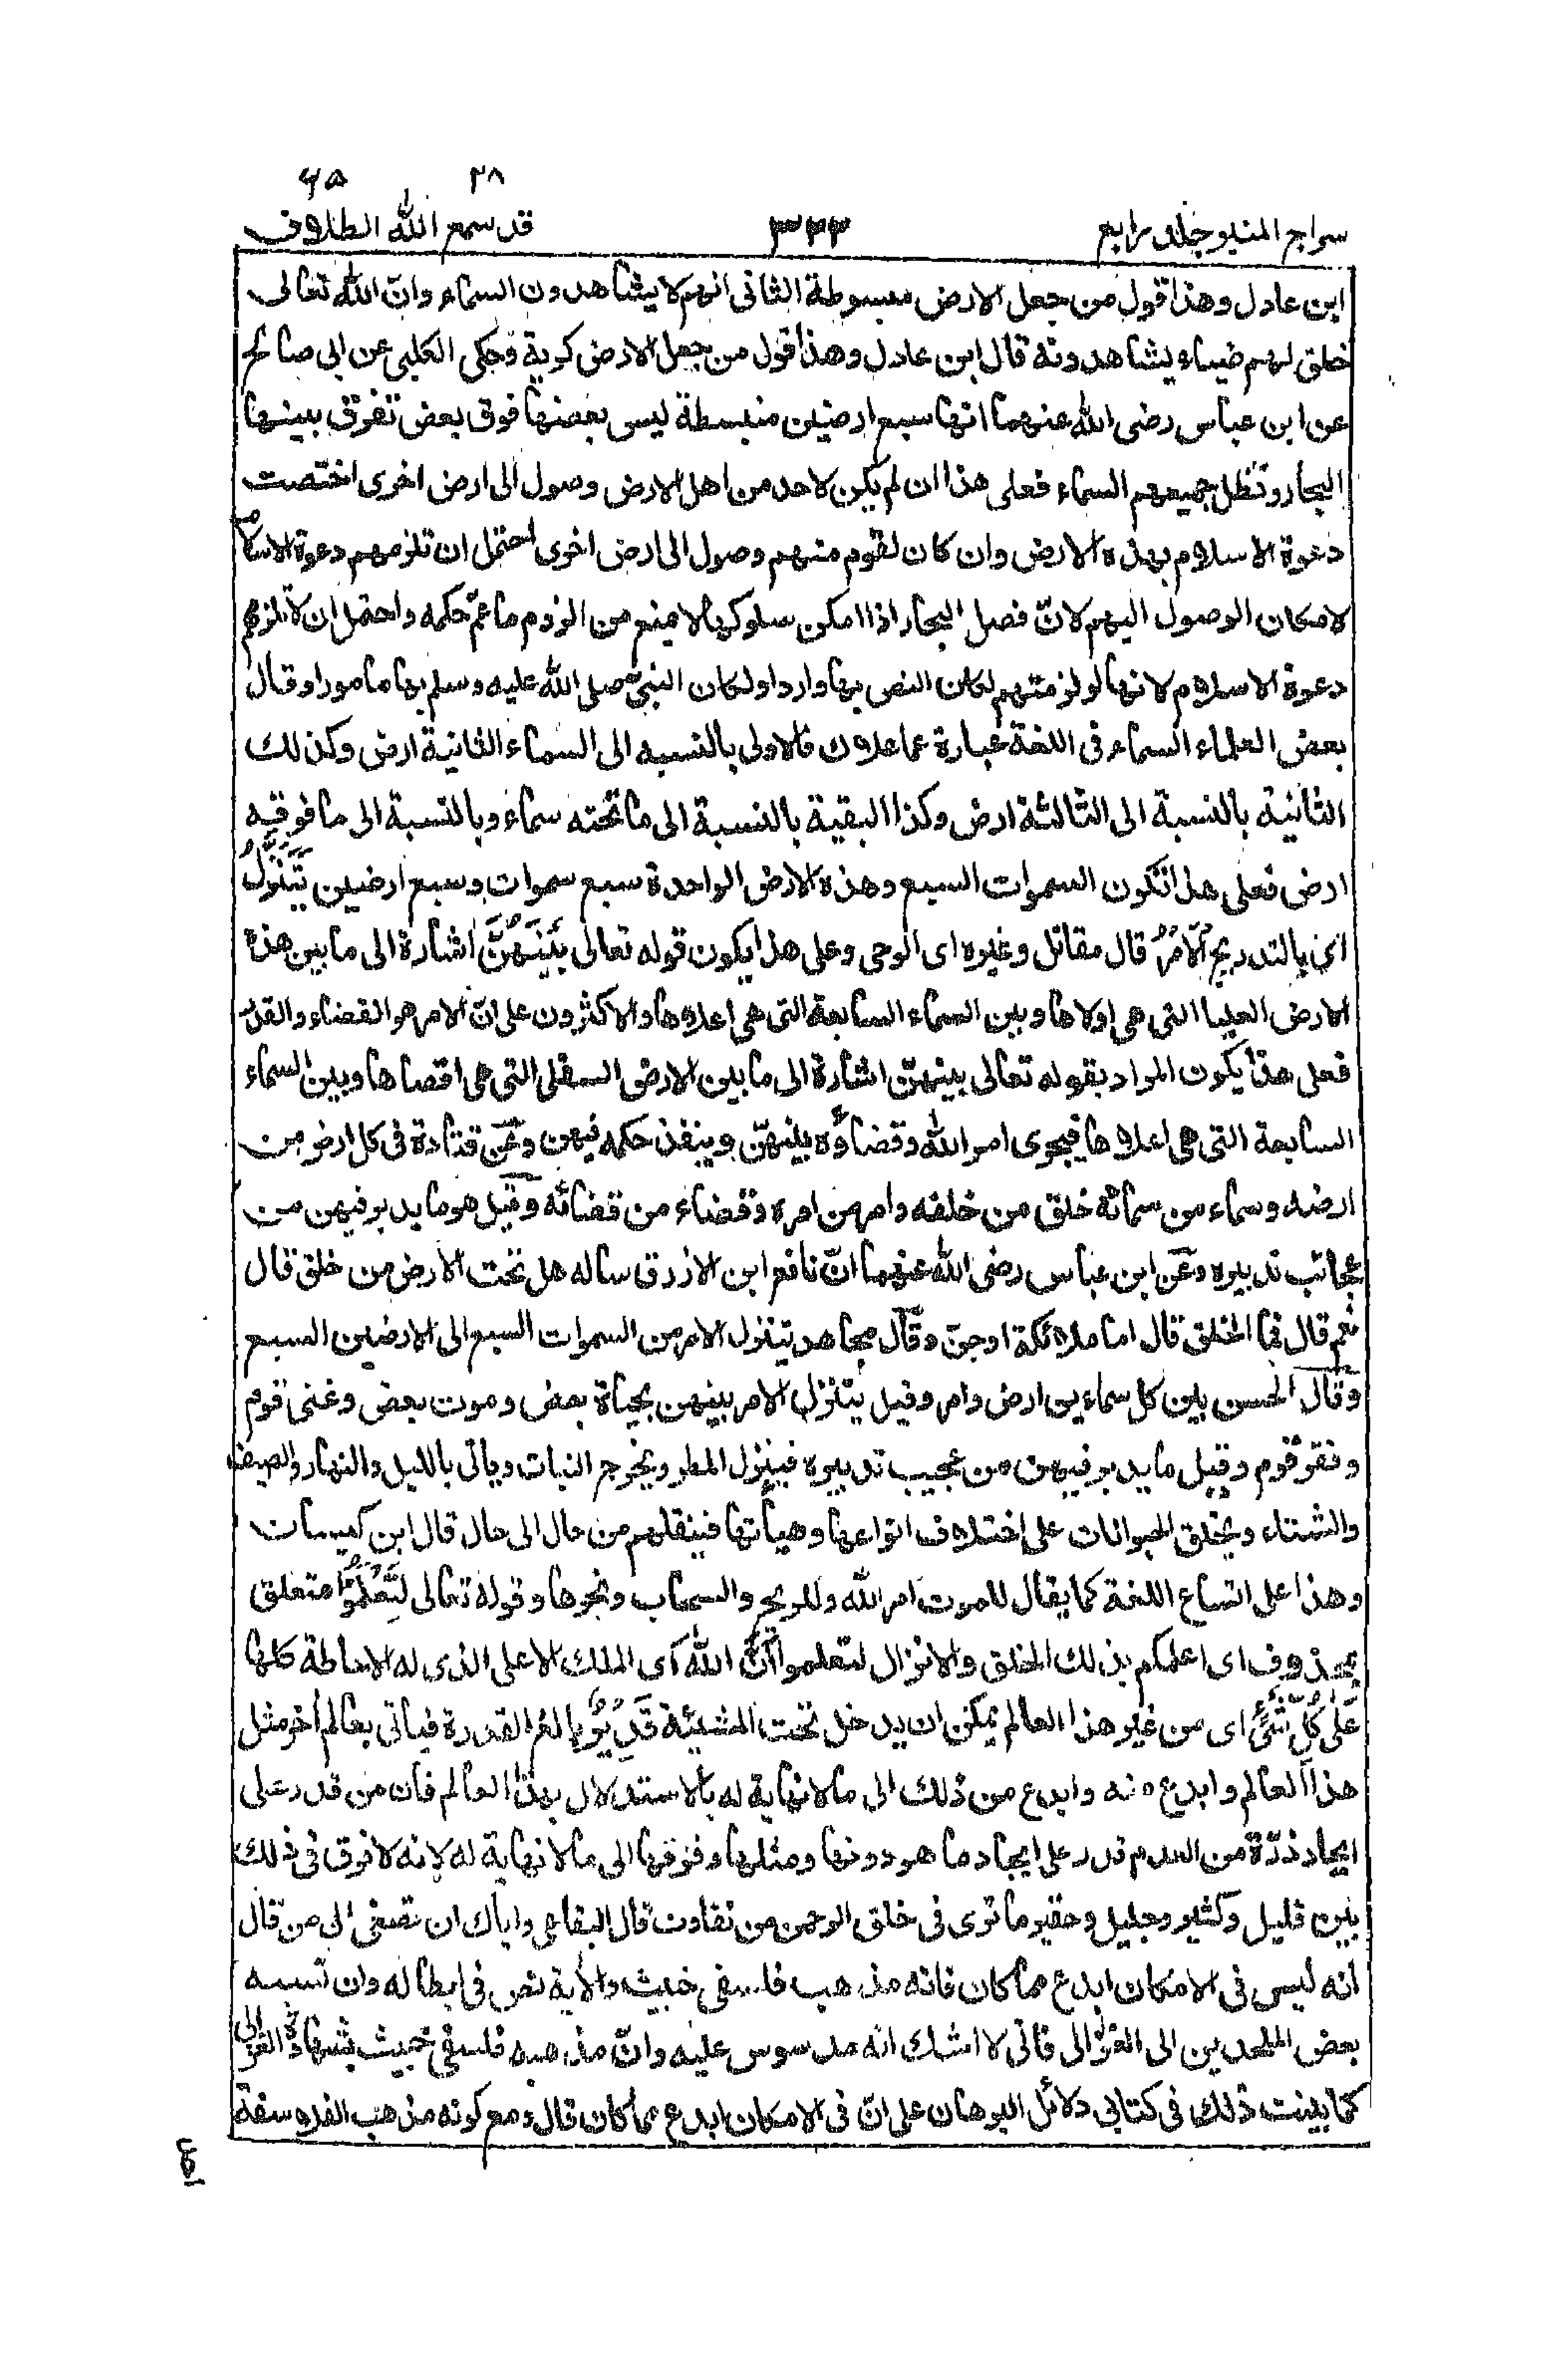 ۲۸ ۶۵
سراج المنير جلد رابع ۳۲۳ قد سمع الله الطلاق
ابن عادل وهذا قول من جعل الارض مبسوطة الثانى انهم لا يشاهدون السماء وانّ الله تعالى
خلق لهم ضياء يشاهدونه قال ابن عادل وهذا قول من جعل الارض كرية وحكى الكلبى عن ابى صالح
عن ابن عباس رضى الله عنهما انها سبع ارضين منبسطة ليس بعضها فوق بعض تفرّق بينها
البحار وتظل جميعهم السماء فعلى هذا ان لم يكن لاحد من اهل الارض وصول الى ارض اخرى اختصت
دعوة الاسلام بهذه الارض وان كان لقوم منهم وصول الى ارض اخرى احتمل ان تلزمهم دعوة الاسلام
لامكان الوصول اليهم لانّ فصل البحار اذا امكن سلوكها لا يمنع من الزوم ما عمّ حكمه واحتمل ان لا تلزمهم
دعوة الاسلام لانها لو لزمتهم لكان النص بها واردا ولكان النبىّ صلى الله عليه وسلم بها مامورا وقال
بعض العلماء السماء فى اللغة عبارة عما علاك فالاولى بالنسبه الى السماء الثانية ارض وكذلك
الثانية بالنسبة الى الثالثة ارض وكذا البقية بالنسبة الى ما تحته سماء وبالنسبة الى ما فوقه
ارض فعلى هذا تكون السموات السبع وهذه الارض الواحدة سبع سموات وسبع ارضين يَتَنَزَّلُ
اى بالتدريج الْاَمْرُ قال مقاتل وغيره اى الوحى وعلى هذا يكون قوله تعالى بَيْنَهُنَّ اشارة الى ما بين هذه
الارض العليا التى هى اولاها وبين السماء السابعة التى هى اعلاها والاكثرون على انّ الامر هو القضاء والقدر
فعلى هذا يكون المراد بقوله تعالى بينهنّ اشارة الى ما بين الارض السفلى التى هى اقصاها وبين السماء
السابعة التى هى اعلاها فيجرى امر الله وقضاؤه بينهنّ وينفذ حكمه فيهن وعن قتادة فى كل ارض من
ارضه وسماء من سمائه خلق من خلقه وامر من امره وقضاء من قضائه وقيل هو ما يدبر فيهن من
عجائب تدبيره وعن ابن عباس رضى الله عنهما انّ نافع ابن الازرق ساله هل تحت الارض من خلق قال
نعم قال فما الخلق قال اما ملائكة او جنّ وقال مجاهد يتنزل الامر من السموات السبع الى الارضين السبع
وقال الحسن بين كل سماءين ارض وامر وقيل يتنزل الامر بينهن بحياة بعض وموت بعض وغنى قوم
وفقر قوم وقيل ما يدبر فيهن من عجيب تدبيره فينزل المطر ويخرج النبات وياتى بالليل والنهار والصيف
والشتاء ويخلق الحيوانات على اختلاف انواعها وهيأتها فينقلهم من حال الى حال قال ابن كيسان
وهذا على اتساع اللغة كما يقال للموت امر الله وللريح والسحاب ونحوها وقوله تعالى لِتَعْلَمُوْا متعلق
بمحذوف اى اعلمكم بذلك الخلق والانزال لتعلموا اَنَّ اللّٰهَ اى الملك الاعلى الذى له الاحاطة كلها
عَلٰى كُلِّ شَىْءٍ اى من غير هذا العالم يمكن ان يدخل تحت المشيئة قَدِيْرٌ بالغ القدرة فياتى بعالم آخر مثل
هذا العالم وابدع منه وابدع من ذلك الى ما لا نهاية له بالاستدلال بهذا العالم فان من قدر على
ايجاد ذرّة من العدم قدر على ايجاد ما هو دونها ومثلها وفوقها الى ما لا نهاية له لانه لا فرق فى ذلك
بين قليل وكثير وجليل وحقير ما ترى فى خلق الرحمن من تفاوت قال البقاعى واياك ان تصغى الى من قال
انه ليس فى الامكان ابدع مما كان فانه مذهب فلسفى خبيث والآية نص فى ابطاله وان نسبه
بعض الملحدين الى الغزالى فانى لا اشك انه مدسوس عليه وانّ مذهبه فلسفى خبيث بشهادة الغزالى
كما بينت ذلك فى كتابى دلائل البرهان على انّ فى الامكان ابدع مما كان قال ومع كونه مذهب الفلاسفة